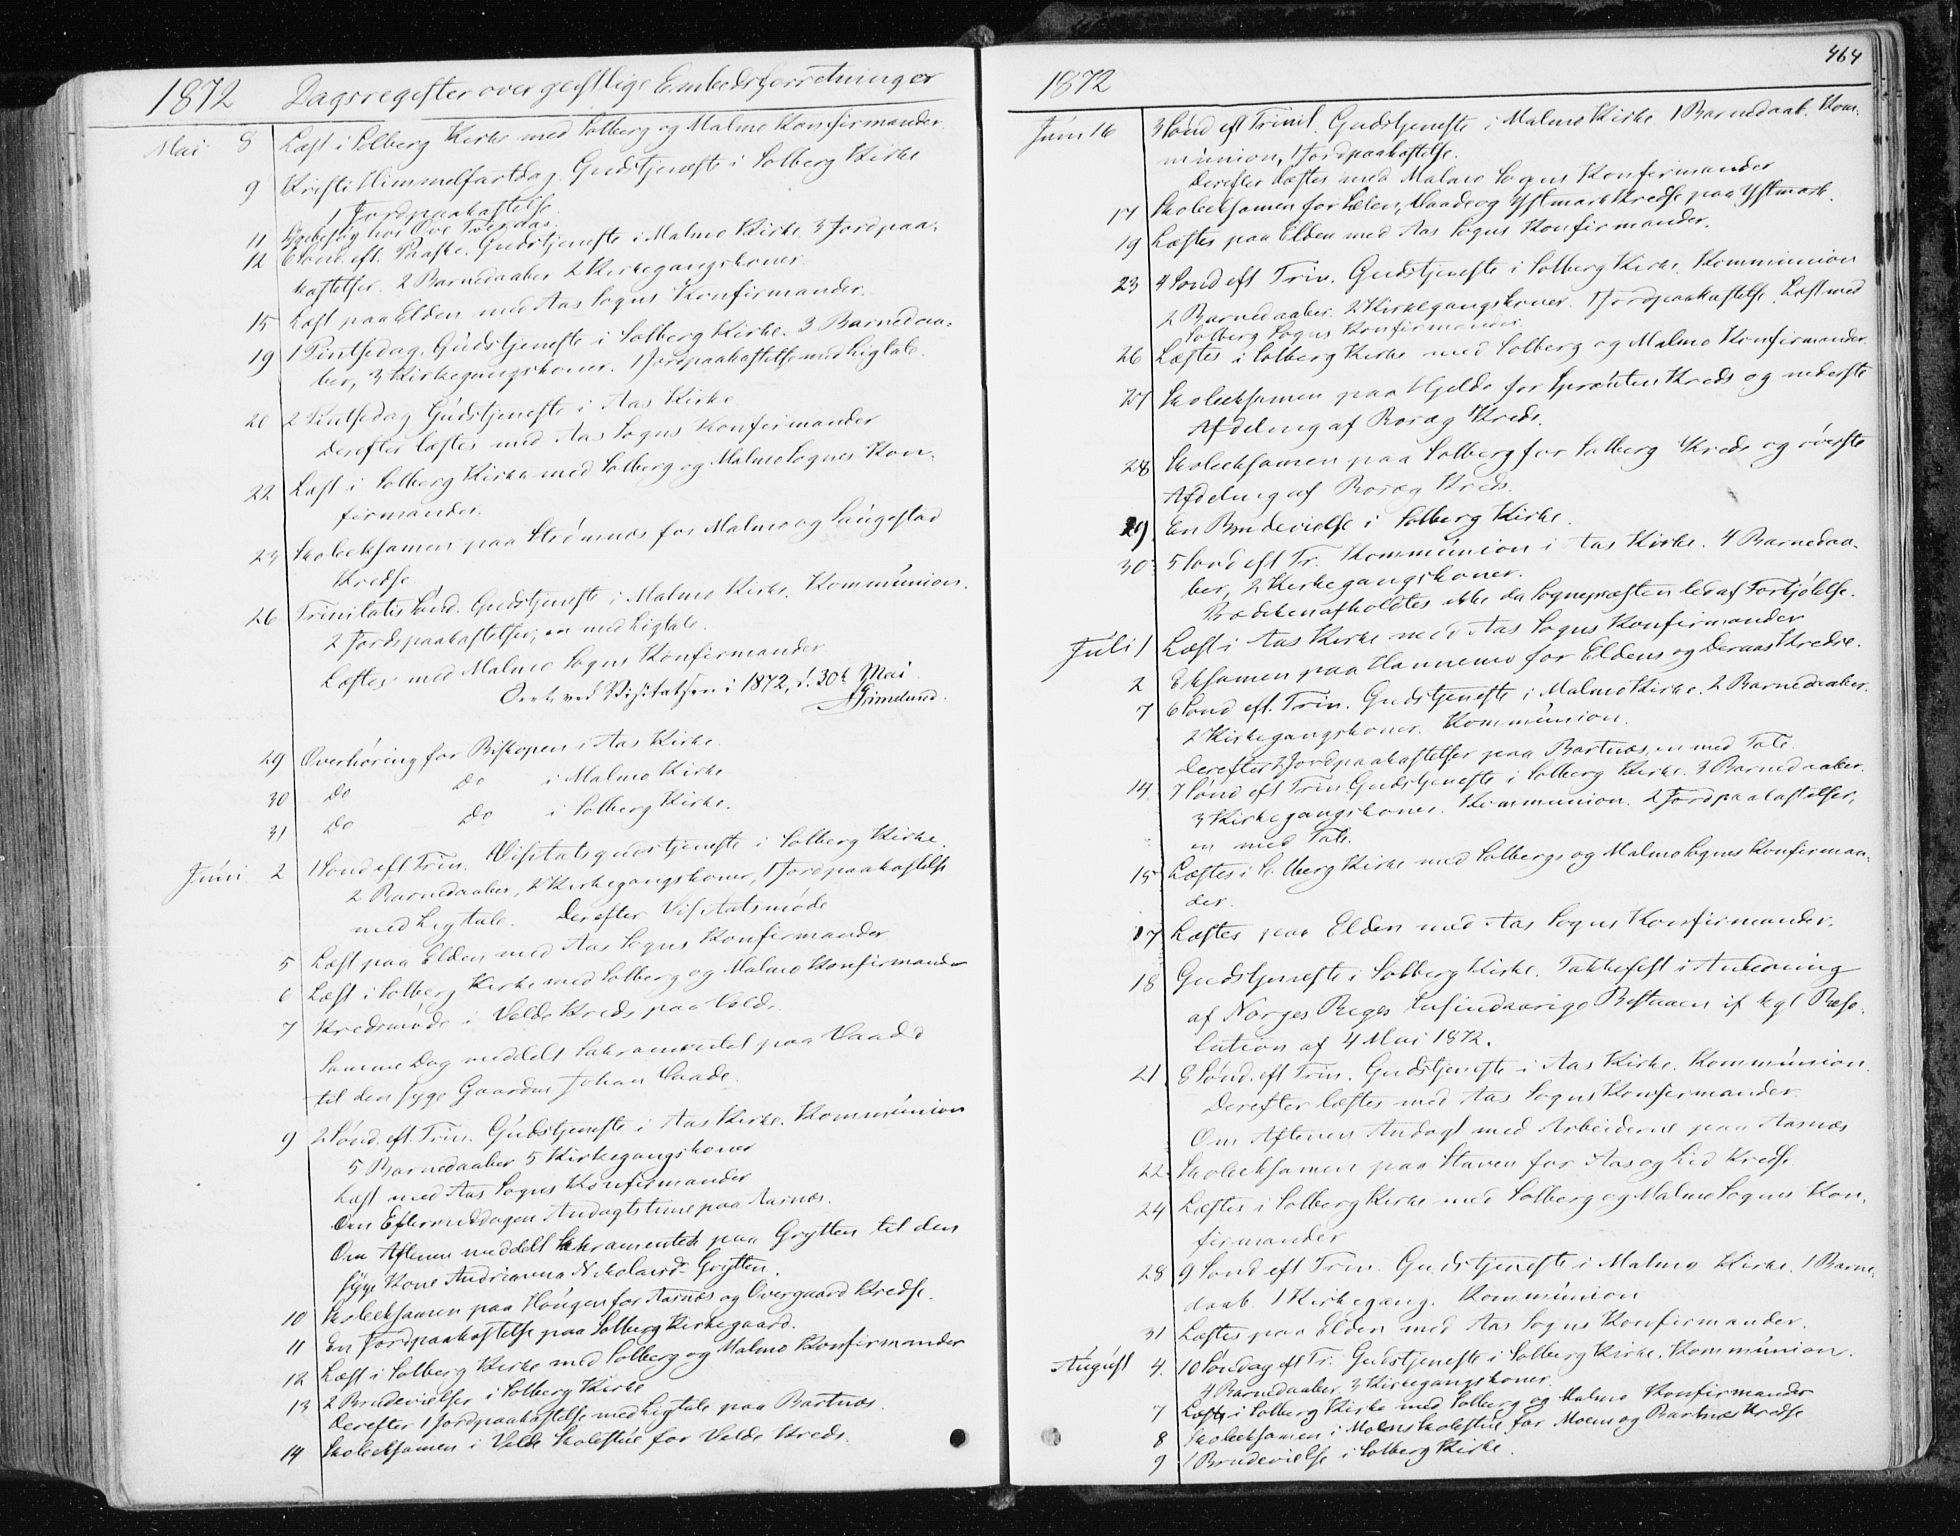 1872 Dagsregister over geistlige Embedsforretninger
Mai 8 Læst i Solberg Kirke med Solberg og Malmo Konfirmander.
9 Kristi Himmelfartdag. Gudstjeneste i Solberg Kirke
1 Jordpaakastelse.
11 Sygebesøg hos Ove
12 6 Sønd. eft. Paaske. Gudstjeneste i Malmo Kirke. 3 Jordpaa-
kastelser. 2 Barnedaaber 2 Kirkegangskoner.
15 Læst paa Elden med Aas Sogns Konfirmander.
19 1 Pintsedag. Gudstjeneste i Solberg Kirke. 3 Barnedaa-
ber, 3 Kirkegangskoner. 1 Jordpaakastelse med Ligtale.
20 2 Pintsedag Gudstjeneste i Aas Kirke
Derefter læstes med Aas Sogns Konfirmander
22 Læst i Solberg Kirke med Solberg og Malmo Sognes Kon-
firmander.
23 Skoleeksamen paa Strømnæs for Malmo og Saugestad
Kredse
26 Trinitatis Sønd. Gudstjeneste i Malmo Kirke. Kommunion.
2 Jordspaakastelser, en med Ligtale.
Læstes med Malmo Sogns Konfirmander
Overt. ved Visitatsen i 1872, d. 30te Mai
AGrimelund.
29 Overhøring for Biskopen i Aas Kirke.
30 Do Do i Malmo Kirke
31 Do Do i Solberg Kirke.
Juni 2 1 Sønd eft Trin. Visitatsgudstjeneste i Solberg Kirke.
2 Barnedaaber, 2 Kirkegangskoner, 1 Jordpaakastelse
med Ligtale. Derefter Visitatsmøde
5 Læst paa Elden med Aas Sogns Konfirmander
6 Læst i Solberg Kirke med Solberg og Malmo Konfirmander
7 Kredsmøde i Velde Kreds paa Velde.
Samme Dag meddelt Sakramentet paa Vaade
til den syge Gaardm Johan Vaade.
9 2 Sønd. eft. Trin. Gudstjeneste i Aas Kirke. Kommunion
5 Barnedaaber 5 Kirkegangskoner
Læst med Aas Sogns Konfirmander
Om Eftermiddagen Andagtstime paa Aasnæs.
Om Aftenen meddelt Sakramentet paa Grytten til den
syge Kone Andrianna Nikolaisd. Grytten.
10 Skoleeksamen paa Haugen for Aasnæs og Overgaard Kredse.
11 En Jordpaakastelse paa Solberg Kirkegaard.
12 Læst i Solberg Kirke med Solberg og Malmo Konfirmander
13 2 Brudevielser i Solberg Kirke
Derefter 1 Jordpaakastelse med Ligtale paa Bartnæs.
14 Skoleeksamen i Velde Skolestue for Velde Kreds.
464
1872
Juni 16 3 Sønd eft Trinit. Gudstjeneste i Malmo Kirke. 1 Barnedaab. Kom-
munion, 1 Jordpaakastelse.
Derefter læstes med Malmo Sogns Konfirmander
17 Skoleeksamen for Sælen, Vaade og Ystmark Kredse paa Ystmark.
19 Læstes paa Elden med Aas Sogns Konfirmander.
23 4 Sønd eft Trin. Gudstjeneste i Solberg Kirke. Kommunion
2 Barnedaaber. 2 Kirkegangskoner. 1 Jordpaakastelse. Læst med
Solberg Sogns Konfirmander.
26 Læstes i Solberg Kirke med Solberg og Malmo Konfirmander.
27 Skoleeksamen paa Hjelde for Spranten Kreds og nederste
Afdeling af Roræg Kreds.
28 Skoleeksamen paa Solberg for Solberg Kreds og øverste
Afdeling af Roræg Kreds.
29. En Brudevielse i Solberg Kirke.
30 5 Sønd eft Tr. Kommunion i Aas Kirke. 4 Barnedaa-
ber, 2 Kirkegangskoner.
Prædiken afholdtes ikke da Sognepræsten led af Forkjølelse.
Juli 1 Læst i Aas Kirke med Aas Sogns Konfirmander
2 Eksamen paa Hannemo for Eldens og Deraas Kredse.
7 6 Sønd eft. Trin. Gudstjeneste i Malmo Kirke. 2 Barnedaaber.
2 Kirkegangskoner. Kommunion.
Derefter 2 Jordpaakastelser paa Bartnæs, en med Tale.
14 7 Sønd eft Trin. Gudstjeneste i Solberg Kirke. 3 Barnedaaber.
3 Kirkegangskoner. Kommunion. 2 Jordpaakastelser,
en med Tale.
15 Læstes i Solberg Kirke med Solbergs og Malmo Sognes Konfirman-
der.
17 Læstes paa Elden med Aas Sogns Konfirmander.
18 Gudstjeneste i Solberg Kirke. Takkefest i Anledning
af Norges Riges tusindaarige Bestaaen if kgl Reso-
lution af 4 Mai 1872.
21. 8 Sønd. eft Trin. Gudstjeneste i Aas Kirke. Kommunion.
Derefter læstes med Aas Sogns Konfirmander.
Om Aftenen Andagt med Arbeiderne paa Aasnæs
22. Skoleeksamen paa Staven for Aas og Lid Kredse
24 Læstes i Solberg Kirke med Solberg og Malmo Sognes Kon-
firmander
28 9 Sønd eft Trin. Gudstjeneste i Malmo Kirke. 1 Barne-
daab. 1 Kirkegang. Kommunion
31 Læstes paa Elden med Aas Sogns Konfirmander.
August 4. 10 Søndag eft Tr. Gudstjeneste i Solberg Kirke. Kommunion.
4 Barnedaaber. 3 Kirkegangskoner.
7 Læstes i Solberg Kirke med Solberg og Malmo Konfirmander
8 Skoleeksamen i Moens Skolestue for Moen og Bartnæs Kredse
9 1 Brudevielse i Solberg Kirke.